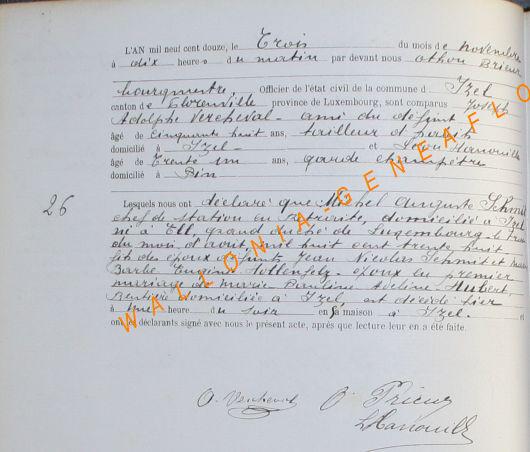 L'AN mil neuf cent douze, le Trois du mois de novembre
à dix heures du matin par devant nous Othon Prieur
bourgmestre, Officier de l'état civil de la commune d' Izel
canton de Florenville province de Luxembourg, sont comparus Joseph
Adolphe Vercheval - ami du défunt
âgé de cinquante huit ans, tailleur d'habits
domicilié à Izel - et Léon Hanouille
âgé de Trente un ans, garde champêtre
domicilié à Pin
26
Lesquels nous ont déclaré que Michel Auguste Schmit
chef de station en retraite, domicilié à Izel
né à Ell, grand duché de Luxembourg le trois
du mois d'avril mil huit cent trente huit
fils des époux défunts Jean Nicolas Schmit et
Barbe Eugénie Hollenfelz - époux en premier
mariage de Marie Pauline Adeline Hubert,
Rentière domiciliée à Izel, est décédé hier
à une heure du soir en sa maison à Izel. - et
ont les déclarants signé avec nous le présent acte, après que lecture leur en a été faite.
WALLONIA-GENEAFLO
A. Vercheval O. Prieur
L Hanouille